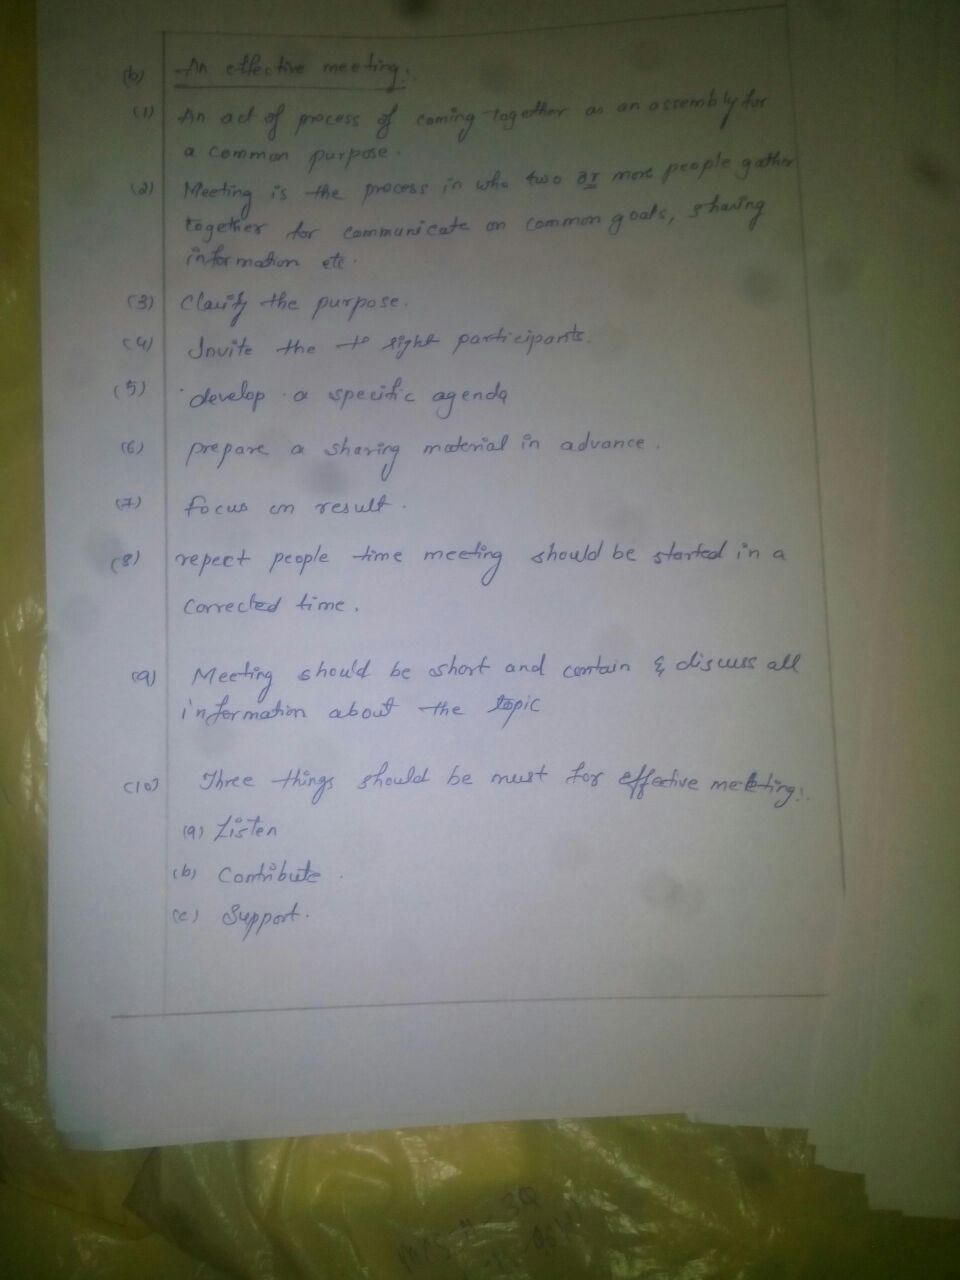 (b) An effective meeting.
(1) An act of process of coming together as an assembly for
a common purpose.
(2) Meeting is the process in who two or more people gather
together for communicate on common goals, sharing
information etc.
(3) Clarify the purpose.
(4) Invite the to right participants.
(5) develop a specific agenda
(6) prepare a sharing material in advance.
(7) focus on result.
(8) repect people time meeting should be started in a
corrected time.
(9) Meeting should be short and contain & discuss all
information about the topic
(10) Three things should be must for effective meeting:
(a) Listen
(b) Contribute.
(c) Support.